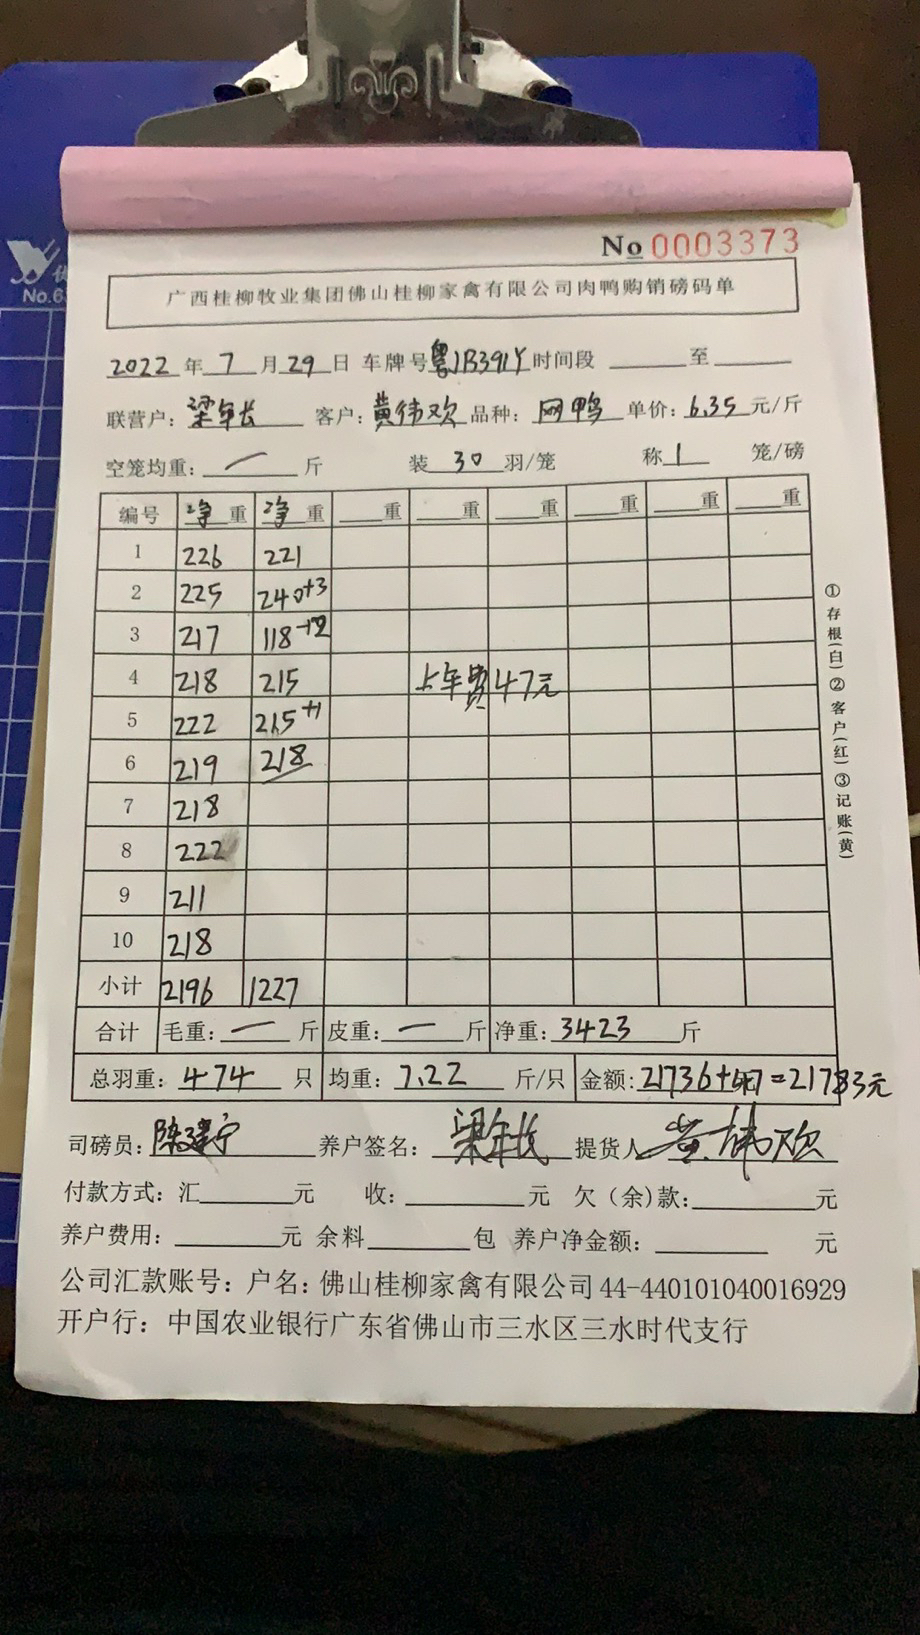 No 0003373
No.6
广西桂柳牧业集团佛山桂柳家禽有限公司肉鸭购销磅码单
2022 年 7 月 29 日 车牌号 粤JB391Y 时间段 ______ 至 ______
联营户: 梁年长 客户: 黄伟欢 品种: 网鸭 单价: 6.35 元/斤
空笼均重: 一 斤 装 30 羽/笼 称 1 笼/磅
编号 净重 净重 ___重 ___重 ___重 ___重 ___重 ___重
1 226 221
2 225 240+3
3 217 118
4 218 215 上车费 47元
5 222 215+1
6 219 218
7 218
8 222
9 211
10 218
小计 2196 1227
合计 毛重: 一 斤 皮重: 一 斤 净重: 3423 斤
总羽重: 474 只 均重: 7.22 斤/只 金额: 21736+47=21783元
司磅员: 陈建宁 养户签名: 梁年长 提货人 黄伟欢
付款方式: 汇______元 收: ______元 欠(余)款: ______元
养户费用: ______元 余料______包 养户净金额: ______ 元
公司汇款账号: 户名: 佛山桂柳家禽有限公司 44-440101040016929
开户行: 中国农业银行广东省佛山市三水区三水时代支行
①存根(白)②客户(红)③记账(黄)